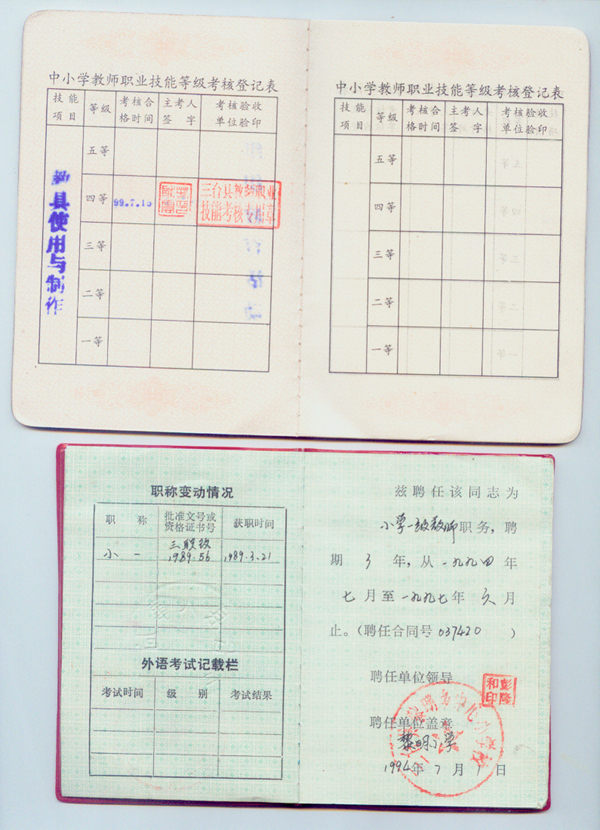 中小学教师职业技能等级考核登记表
技能项目 等级 考核合格时间 主考人签字 考核验收单位验印
五等
四等 99.7.10 三台县教师职业技能考核专用章
三等
二等
一等
具使用与制作
中小学教师职业技能等级考核登记表
技能项目 等级 考核合格时间 主考人签字 考核验收单位验印
五等
四等
三等
二等
一等
职称变动情况
职称 批准文号或资格证书号 获职时间
小一 三职改1989.56 1989.3.21
外语考试记载栏
考试时间 级别 考试结果
兹聘任该同志为
小学一级教师职务，聘
期 3 年，从一九九四年
七月至一九九七年六月
止。（聘任合同号 037420 ）
聘任单位领导
彭隆和印
聘任单位盖章
黎明小学
1994年7月1日